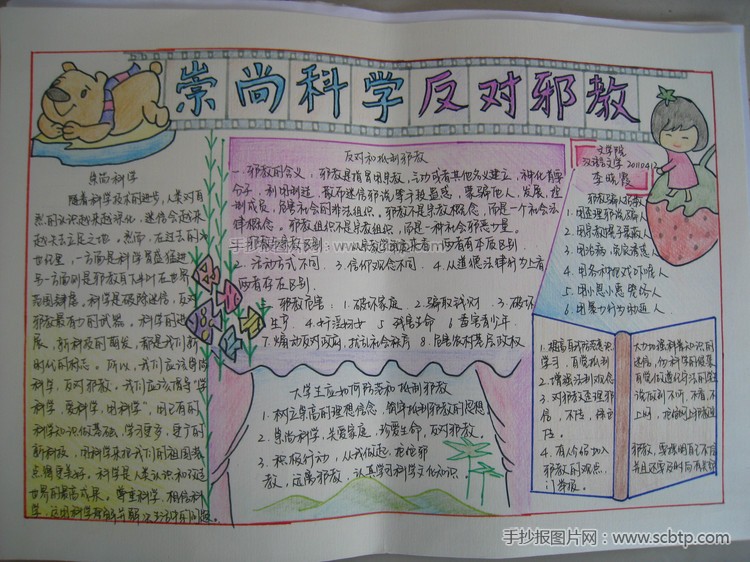 崇尚科学反对邪教
文学院
汉语文学 20110412
李晓霞
崇尚科学
随着科学技术的进步，人类对自
然的认识越来越深化，迷信会越来
越失去立足之地。然而，在过去的
世纪里，一方面是科学突飞猛进
另一方面则是邪教
范围肆虐。科学是破除迷信，反对
邪教最有力的武器。科学的进
展，新科技的
时代的标志。所以，我们应该崇尚
科学，反对邪教。我们应该倡导"学
科学，爱科学，用科学"，用已有的
科学知识做基础，学习更多，更广的
新科技，用科学来把我们的祖国装
点得更美好。科学是人类认识和改造
世界的最高成果。尊重科学，相信科
学，
反对和抵制邪教
一、邪教的含义，邪教是指冒用宗教，气功或者其他名义建立，神化首要
分子，利用制造、散布迷信邪说等手段蛊惑、蒙骗他人，发展、控
制成员，危害社会的非法组织。邪教不是宗教概念，而是一个社会法
律概念，邪教组织不是宗教组织，而是一种社会邪恶力量。
二、邪教与宗教区别 1.从宗教学的角度来看，两者有本质区别
2.活动方式不同 3.信仰观念不同 4.从道德法律行为上看
两者存在区别
三、邪教危害：1.破坏家庭 2.骗取钱财 3.破坏
生产 4.奸淫妇女 5.残害生命 6.毒害青少年
7.煽动反对政府，扰乱社会秩序 8.危害农村基层政权
大学生应如何防范和抵制邪教
1.树立崇高的理想信念，筑牢抵制邪教的思想
2.崇尚科学，关爱家庭，珍爱生命，反对邪教。
3.积极行动，从我做起，抵御邪
教，远离邪教，认真学习科学文化知识。
邪教骗人伎俩
1.用歪理邪说骗人
2.用教规多骗人
3.用治病、免灾诱惑人
4.用各种咒对吓唬人
5.用小恩小惠拉人
6.用暴力行为制造人
1.提高自我防范意识
学习，自觉抵制
2.增强法制观念
3.对邪教歪理邪
信，不传，
4.有人介绍加入
邪教的观点，
门举报。
大力加强科普知识的
迷信，伪科学的
自觉做遵纪守法的
该做到不听，不看，不
上网，抵御网上邪教
邪教，要提明自己不信
并且还要及时与有关
手抄报图片网：www.scbtp.com
手抄报图片网：www.scbtp.com